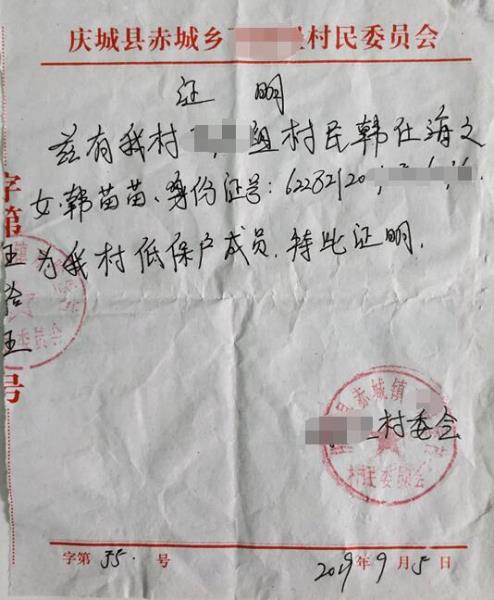 庆城县赤城乡 村民委员会
证 明
兹有我村 组村民韩仕海之
女,韩苗苗、身份证号:62282120
为我村低保户成员.特此证明.
村委会
赤城镇
村民委员会
字第 35. 号
2019年9月5日
字第
号
委员会